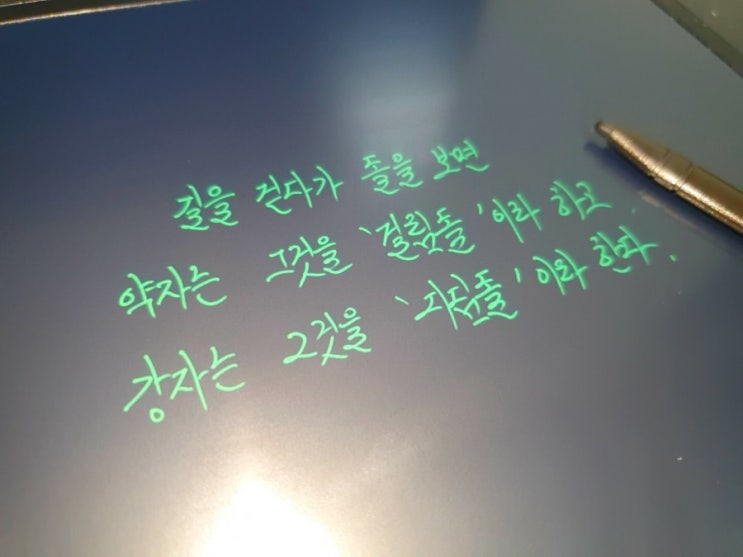 길을 걷다가 돌을 보면
약자는 그것을 '걸림돌'이라 하고.
강자는 그것을 '디딤돌'이라 한다.